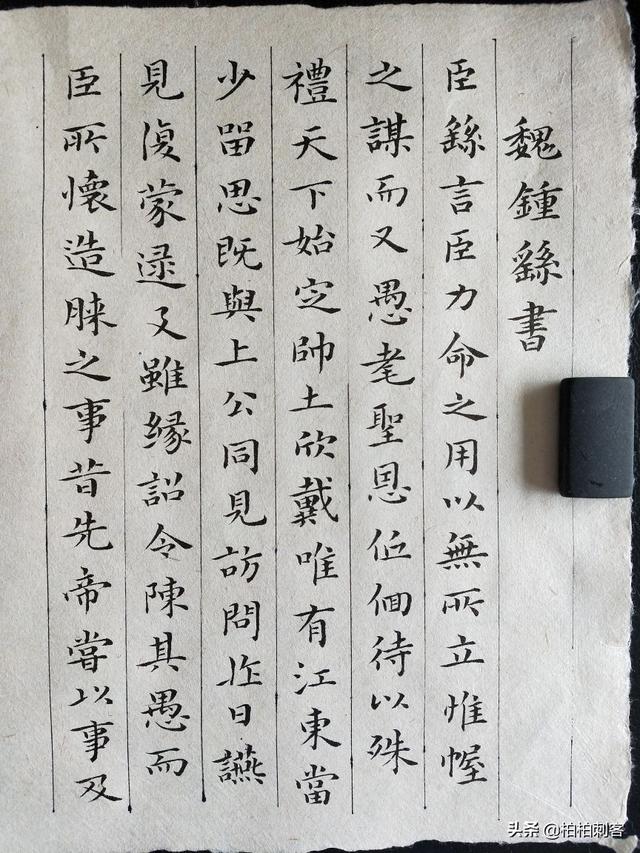 魏鍾繇書
臣繇言臣力命之用以無所立惟幄
之謀而又愚耄聖恩低佪待以殊
禮天下始定帥土欣戴唯有江東當
少留思既與上公同見訪問昨日讌
見復蒙逮及雖緣詔令陳其愚而
臣所懷造膝之事昔先帝嘗以事及
头条 @柏柏刺客